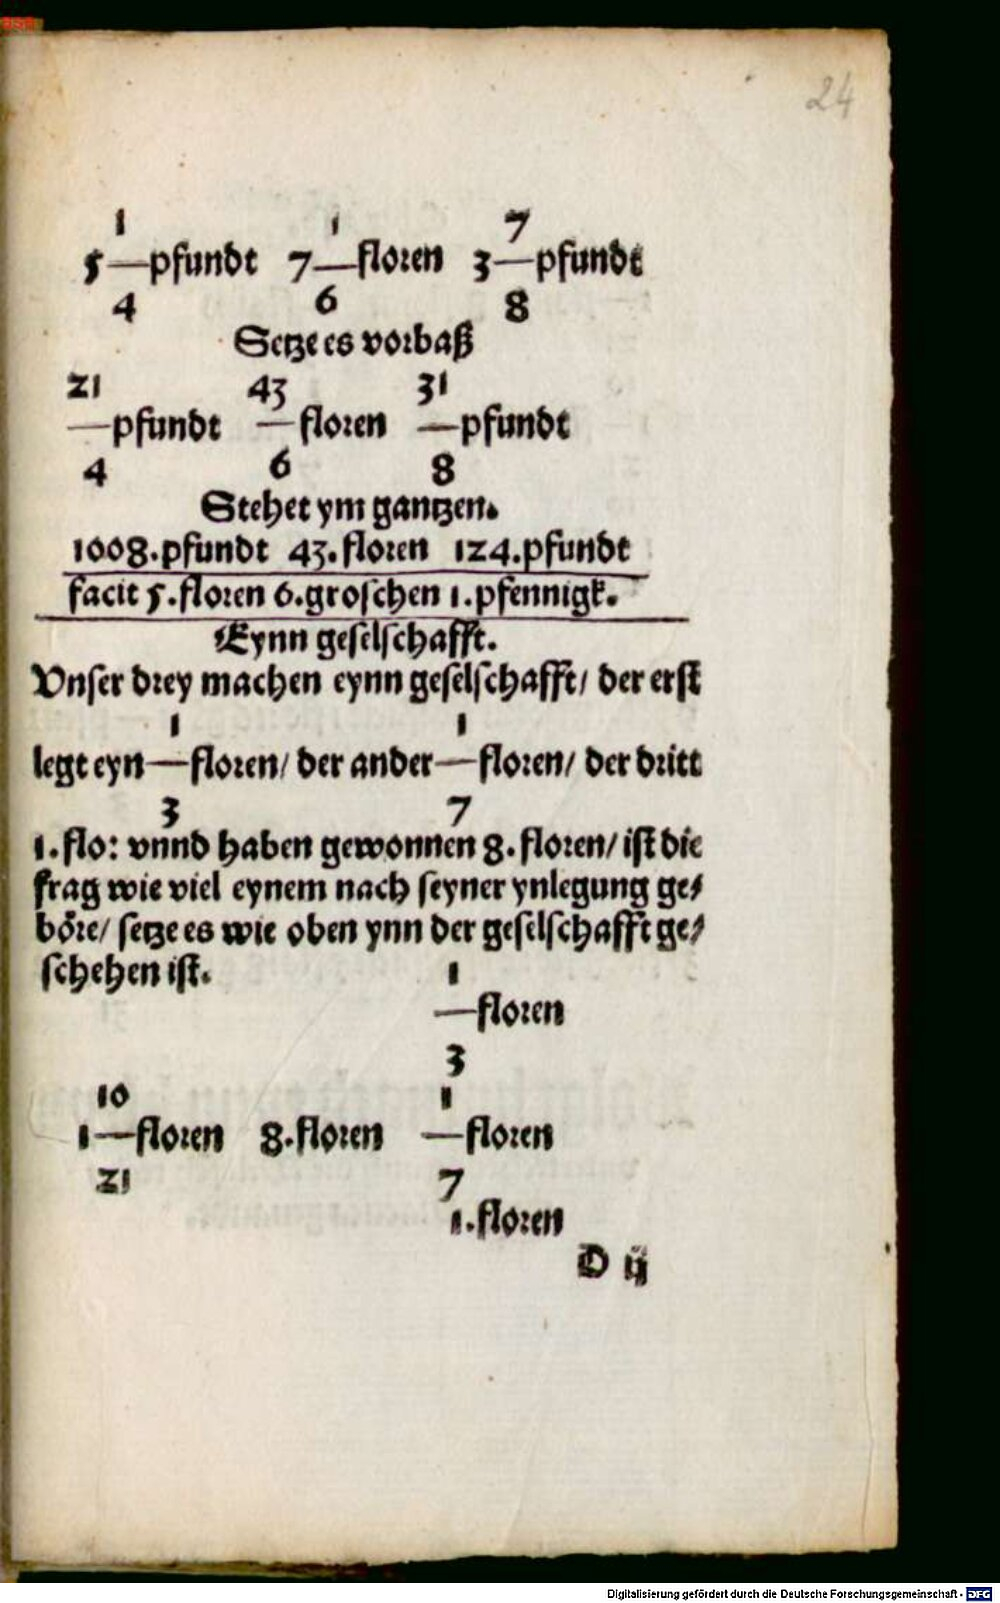 24
1 1 7
5—pfundt 7—floren 3—pfundt
4 6 8
Setze es vorbaß
21 43 31
—pfundt —floren —pfundt
4 6 8
Stehet ym gantzen.
1008.pfundt 43.floren 124.pfundt
facit 5.floren 6.groschen 1.pfennigk.
Eynn geselschafft.
Vnser drey machen eynn geselschafft/ der erst
1 1
legt eyn—floren/ der ander—floren/ der dritt
3 7
1.flo: vnnd haben gewonnen 8.floren/ ist die
frag wie viel eynem nach seyner ynlegung ge⸗
böre/ setze es wie oben ynn der geselschafft ge⸗
schehen ist.
1
—floren
3
10 1
1—floren 8.floren —floren
21 7
1.floren
D ij
Digitalisierung gefördert durch die Deutsche Forschungsgemeinschaft - DFG